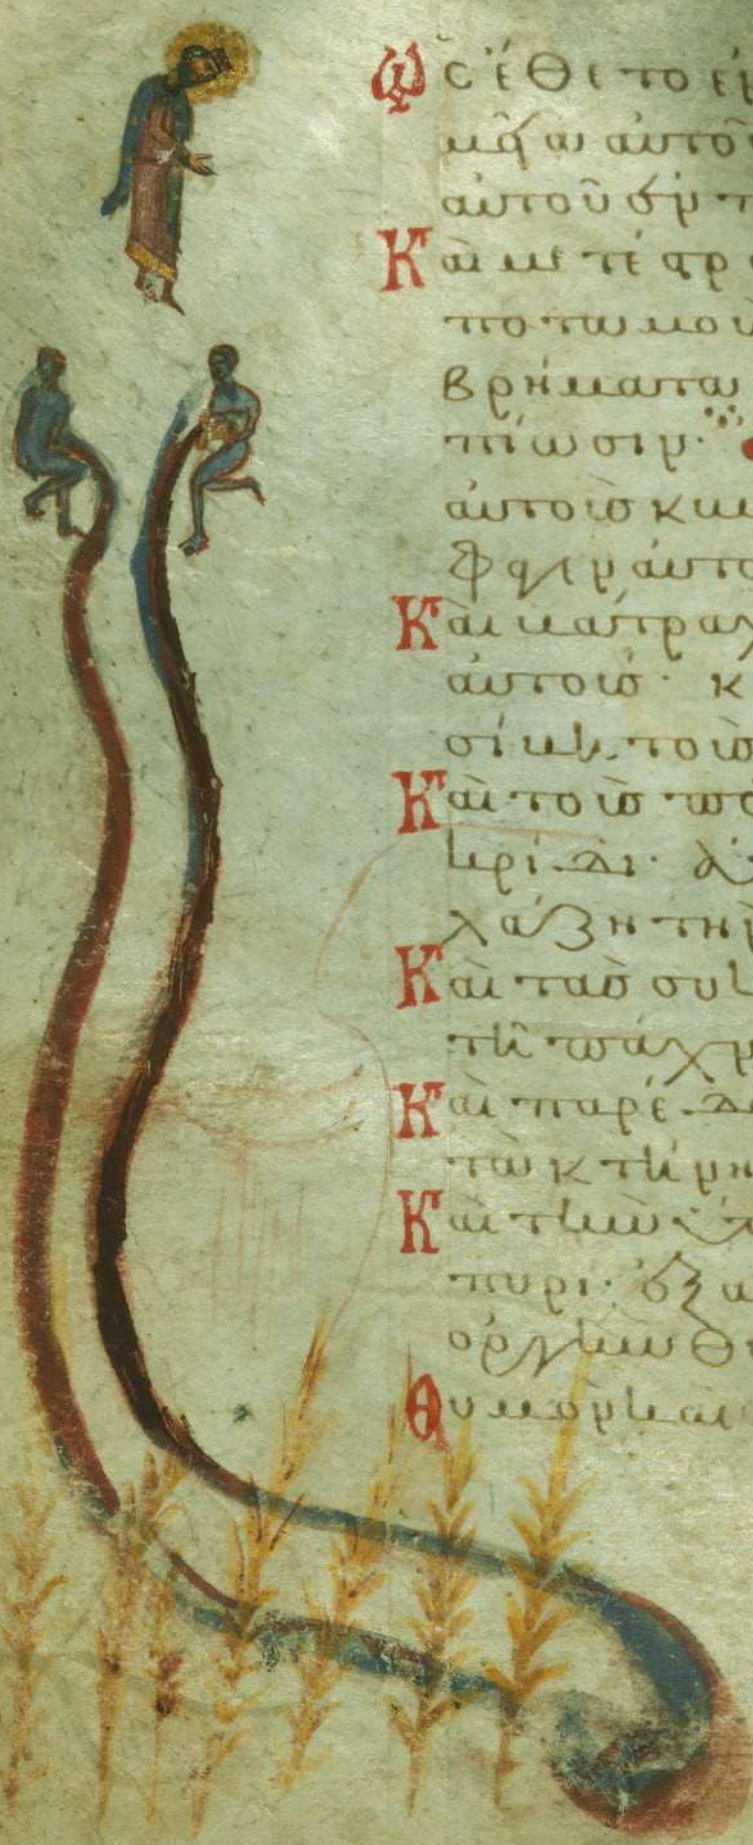 Ὡς ἔθετο ἐν
μεῖα αὐτοῦ
αὐτοῦ ἐν π
Καὶ μετέστρ
ποταμοὺ
βρήματα
πίωσιν·
αὐτοὺς κυ
φαγεν αὐτο
Καὶ βάτραχ
αὐτούς· κ
σίβη τοὺς
Καὶ τοὺς πο
κρίδι· ἀ
λάζη τὴν
Καὶ τὰς συκ
τῇ πάχν
Καὶ παρέδ
τὰ κτήνη
Καὶ τὴν ὕπ
πυρί· ἐξα
ὀργὴν θυ
Θυμὸν καὶ